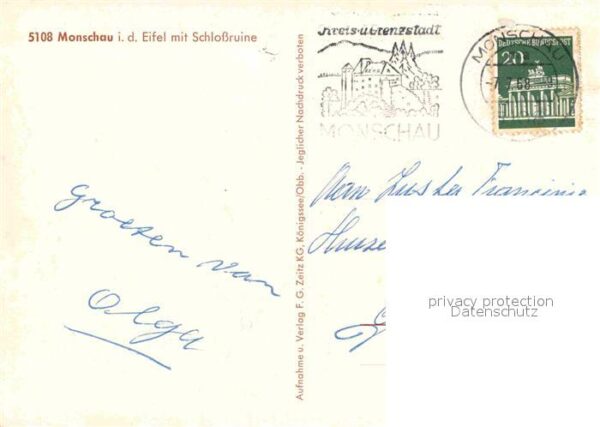 5108 Monschau i. d. Eifel mit Schloßruine
Groeten van
Olga
Aufnahme u. Verlag F. G. Zeitz KG, Königssee/Obb. - Jeglicher Nachdruck verboten
Kreis- u Grenzstadt
MONSCHAU
MONSCHAU
DEUTSCHE BUNDESPOST
20
Aan Zuster Francisca
privacy protection
Datenschutz